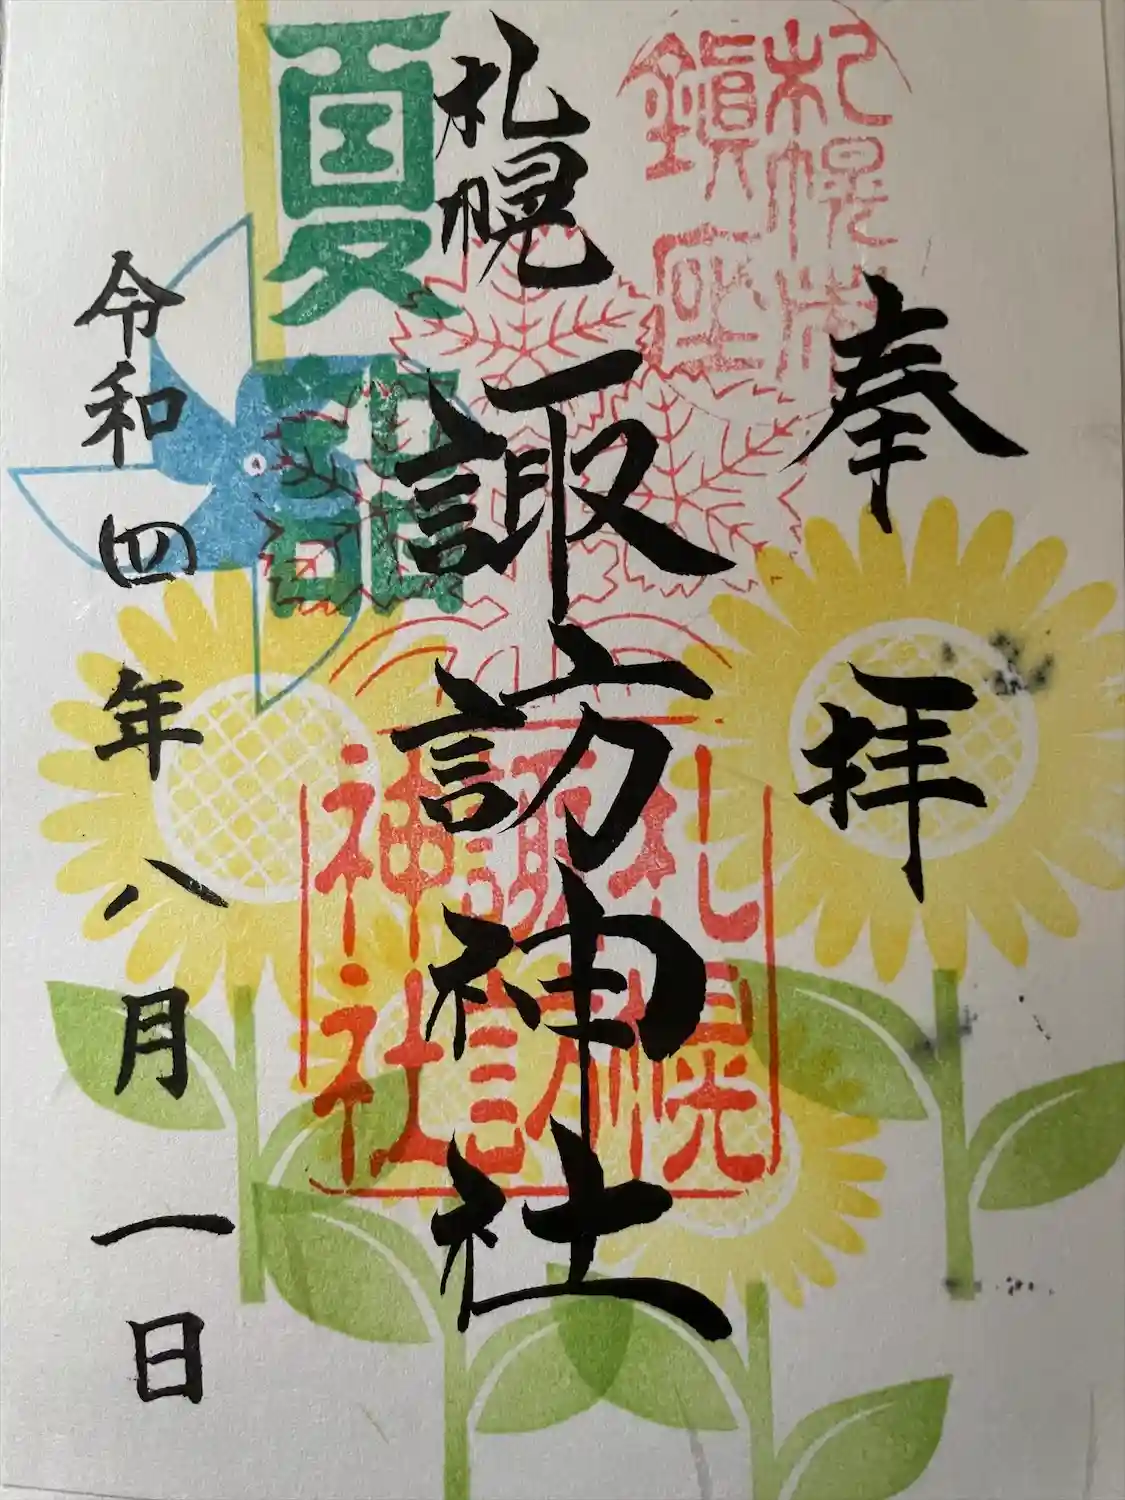 奉拝
札幌市
鎮座
札幌
諏訪神社
札幌
諏訪
神社
夏詣
令和四年八月一日